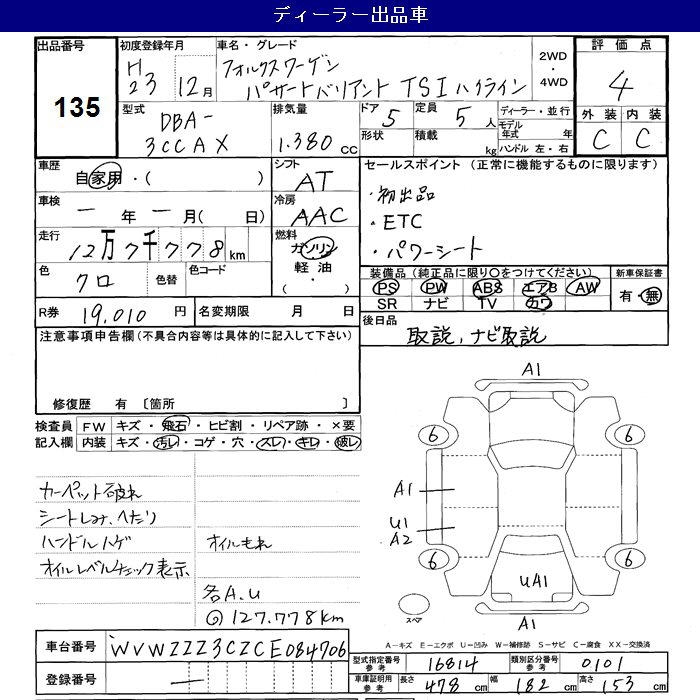 ディーラー出品車
出品番号
135
初度登録年月
H23 12月
車名・グレード
フォルクスワーゲン
パサートバリアント TSIハイライン
2WD
・
4WD
評価点
4
外装 内装
C C
型式
DBA-
3CCAX
排気量
1.380 cc
ドア
5
定員
5人
形状
積載
kg
ディーラー・並行
モデル年式 年
ハンドル 左・右
車歴
自家用・( )
シフト
AT
セールスポイント (正常に機能するものに限ります)
・初出品
・ETC
・パワーシート
車検
ー年ー月( 日)
冷房
AAC
走行
12万7千778km
燃料
ガソリン
軽油
( ・ )
色
クロ
色替
色コード
装備品(純正品に限り○をつけてください)
PS PW ABS エアB AW
SR ナビ TV カワ
新車保証書
有・無
R券
19,010 円
名変期限 月 日
後日品
取説、ナビ取説
注意事項申告欄(不具合内容等は具体的に記入して下さい)
修復歴 有 〔箇所 〕
検査員記入欄
FW キズ・飛石・ヒビ割・リペア跡・×要
内装 キズ・汚レ・コゲ・穴・スレ・キレ・破レ
カーペット破れ
シートしみ、へたり
ハンドルハゲ
オイルもれ
オイルレベルチェック表示
各A.U
◎127.778km
A1
6
6
A1
U1
A2
6
6
UA1
スペア
A1
A-キズ E-エクボ U-凹み W-補修跡 S-サビ C-腐食 XX-交換済
車台番号
WVWZZZ3CZCE084706
登録番号
ー
型式指定番号 参考
16814
類別区分番号 参考
0101
車庫証明用 参考
長さ 478cm 幅 182cm 高さ 153cm